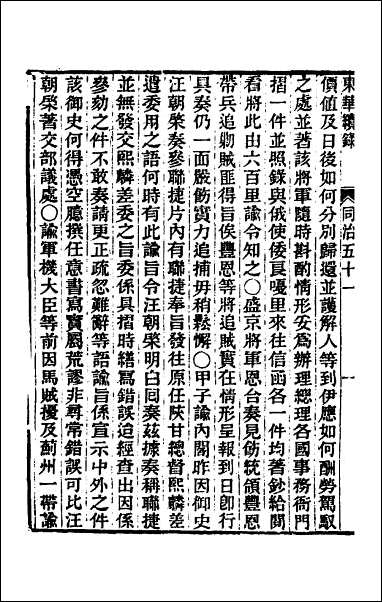 東華續錄　同治五十一　一
價值及日後如何分別歸還並護解人等到伊應如何酬勞駕馭
之處並著該將軍隨時斟酌情形妥爲辦理總理各國事務衙門
摺一件並照錄與俄使倭良嘎里來往信函各一件均著鈔給閱
看將此由六百里諭令知之○盛京將軍恩合奏見飭統領豐恩
帶兵追剿賊匪得旨俟豐恩等將追賊實在情形呈報到日卽行
具奏仍一面嚴飭實力追捕毋稍鬆懈○甲子諭內閣昨因御史
汪朝棨奏參聯捷片內有聯捷奉旨發往原任陝甘總督熙麟差
遣委用之語何時有此諭旨令汪朝棨明白回奏茲據奏稱聯捷
並無發交熙麟差委之旨委係具摺時繕寫錯誤迨經查出因係
參劾之件不敢奏請更正疏忽難辭等語諭旨係宣示中外之件
該御史何得憑空臆撰任意書寫實屬荒謬非尋常錯誤可比汪
朝棨著交部議處○諭軍機大臣等前因馬賊擾及薊州一帶諭